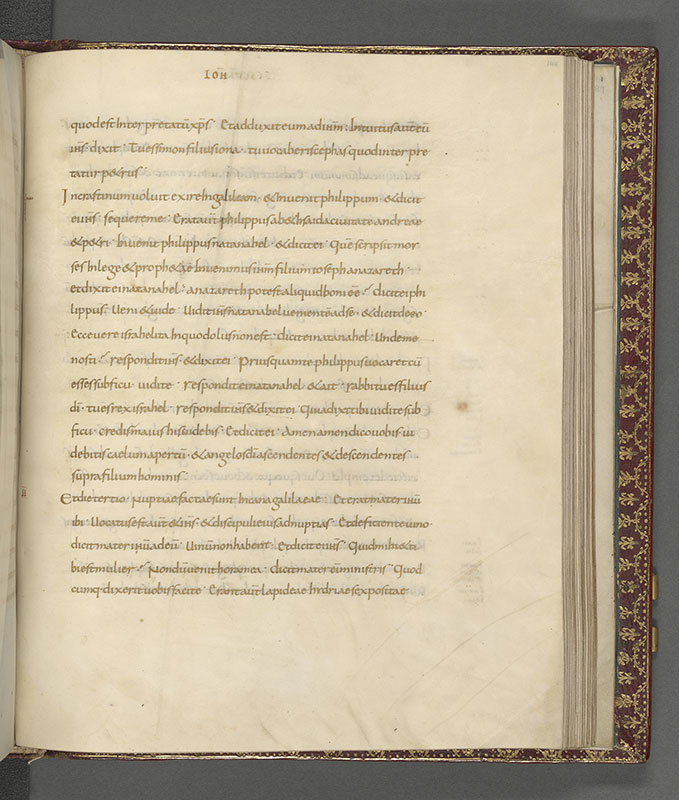 IOH̄
quod est interpretatū xp̄s · Et adduxit eum ad ihm̄ · Intuitus aut̄ eū
ihs̄ · dixit · Tu es simon filius iona · tu vocaberis cephas quod interpre
tatur p&rus
In crastinum voluit exire in galileam · & invenit philippum · & dicit
ei ihs̄ sequere me · Erat aut̄ philippus ab &hsaida civitate andreae
& p&ri · Invenit philippus natanahel · & dicit ei · Quē scripsit moy
ses in lege & proph&ae invenimus ihm̄ filium ioseph a nazareth
et dixit ei natanahel · a nazareth potest aliquid boni eē · dicit ei phi
lippus · Veni & vide · Vidit ihs̄ natanahel venientē ad se · & dicit de eo
Ecce vere israhelita in quo dolus non est · dicit ei natanahel · Unde me
nosti · respondit ihs̄ · & dixit ei · Priusquam te philippus vocaret cū
esses sub ficu · vidi te · respondit ei natanahel & ait · rabbi tu es filius
dī · tu es rex israhel · respondit ihs̄ & dixit ei · Quia dixi tibi vidi te sub
ficu · credis maius his videbis · Et dicit ei · Amen amen dico vobis · vi
debitis caelum apertū · & angelos dī ascendentes & descendentes
supra filium hominis ·
Et die tertio · Nuptiae factae sunt in cana galilaeae · Et erat mater ihū
ibi · Vocatus est aut̄ & ihs̄ · & discipuli eius ad nuptias · Et deficiente vino ·
dicit mater ihū ad eū · Vinū non habent · Et dicit ei ihs̄ · Quid mihi & ti
bi est mulier · Nondū venit hora mea · dicit mater eius ministris · Quod
cumq· dixerit vobis facite · Erant aut̄ lapideae hydriae sex positae